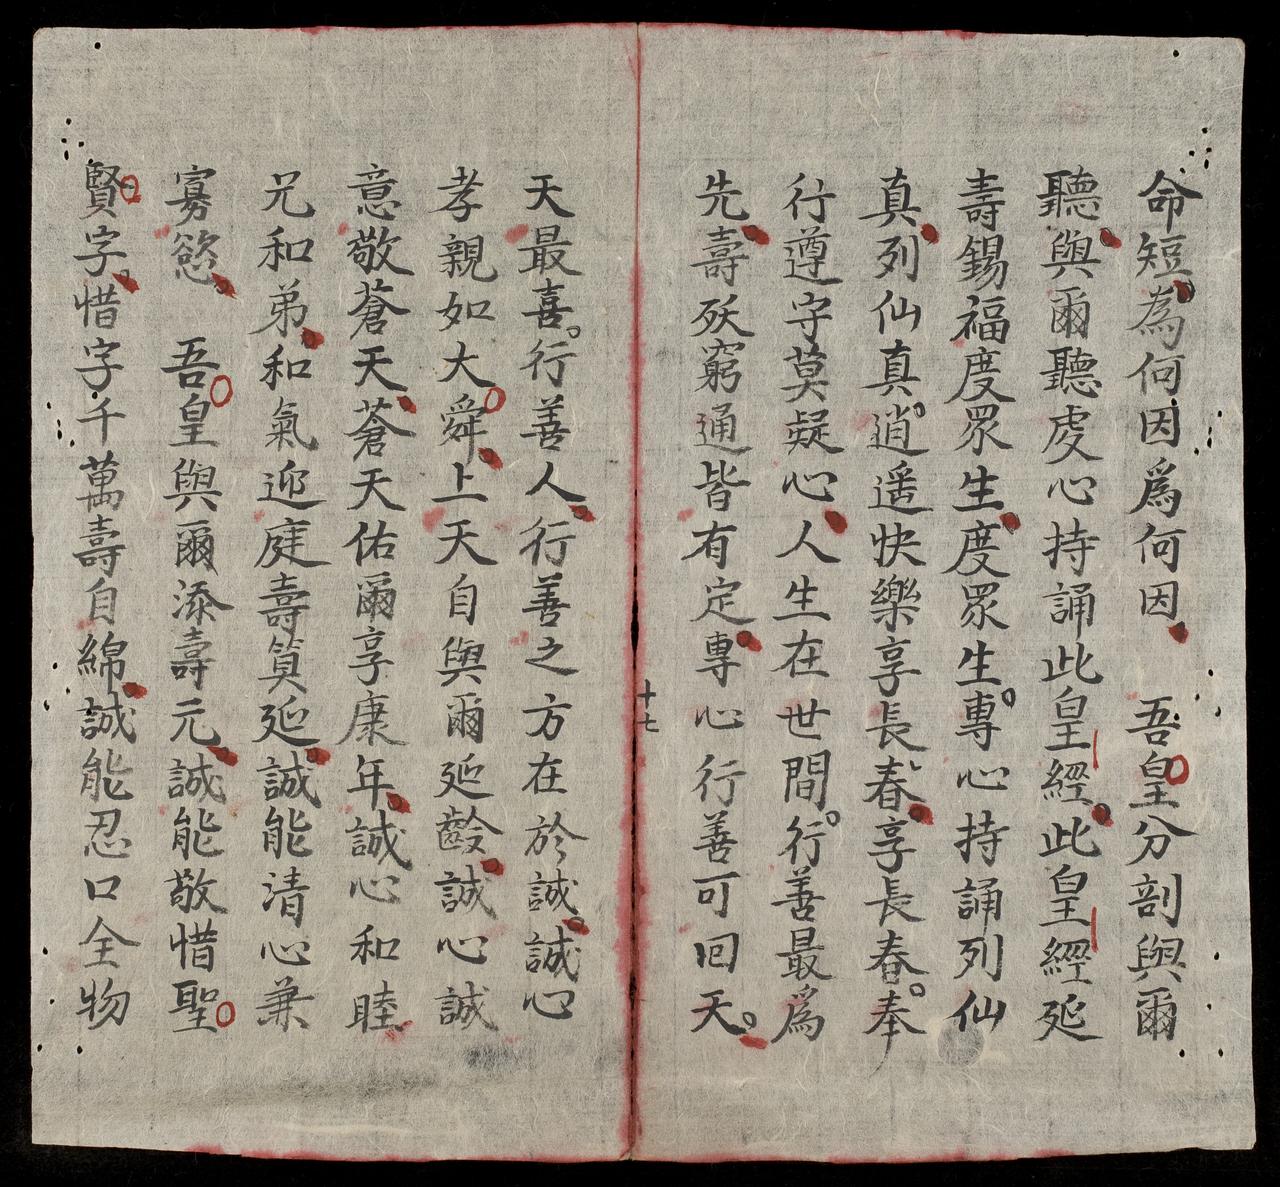 命短為何因爲何因　吾皇分剖與爾
聽與爾聽虔心持誦此皇經此皇經延
壽錫福度眾生度眾生專心持誦列仙
真列仙真逍遥快樂享長春享長春奉
行遵守莫疑心人生在世間行善最爲
先壽殀窮通皆有定專心行善可回天
十七
天最喜行善人行善之方在於誠誠心
孝親如大舜上天自與爾延齡誠心誠
意敬蒼天蒼天佑爾享康年誠心和睦
兄和弟和氣迎庭壽筭延誠能清心兼
寡慾　吾皇與爾添壽元誠能敬惜聖
賢字惜字千萬壽自綿誠能忍口全物